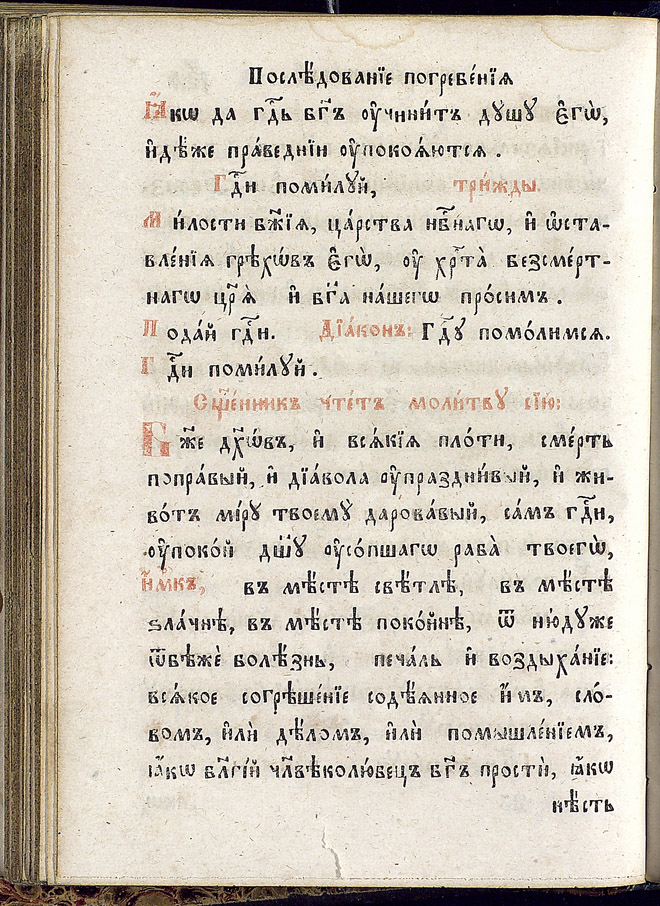 Послѣ́дованїе погребе́нїѧ
Ꙗ҆́кѡ да гдⷭ҇ь бг҃ъ ᲂу҆чини́тъ дꙋшꙋ̀ є҆гѡ̀,
и҆дѣ́же пра́веднїи ᲂу҆поко́ѧютсѧ .
Гдⷭ҇и поми́лꙋй, три́жды.
Ми́лости бж҃їѧ, ца́рства нбⷭ҇нагѡ, и҆ ѡ҆ста-
вле́нїѧ грѣхѡ́въ є҆гѡ̀, ᲂу҆ хрⷭ҇та̀ безсме́рт-
нагѡ цр҃ѧ̀ и҆ бг҃а на́шегѡ про́симъ .
Пода́й гдⷭ҇и. Дїа́конъ: Гдⷭ҇ꙋ помо́лимсѧ.
Гдⷭ҇и поми́лꙋй .
Сщ҃е́нникъ чте́тъ моли́твꙋ сїю̀:
Бж҃е дх҃ѡ́въ, и҆ всѧ́кїѧ пло́ти, сме́рть
попра́вый, и҆ дїа́вола ᲂу҆праздни́вый, и҆ жи-
во́тъ мі́рꙋ твоемꙋ̀ дарова́вый, са́мъ гдⷭ҇и,
ᲂу҆поко́й дш҃ꙋ ᲂу҆со́пшагѡ раба̀ твоегѡ̀,
и҆́м҃къ, въ мѣ́стѣ свѣ́тлѣ, въ мѣ́стѣ
ѕла́чнѣ, въ мѣ́стѣ поко́йнѣ, ѿ ню́дꙋже
ѿбѣжѐ болѣ́знь, печа́ль и҆ воздыха́нїе:
всѧ́кое согрѣше́нїе содѣ́ѧнное и҆́мъ, сло́-
вомъ, и҆лѝ дѣ́ломъ, и҆лѝ помышле́нїемъ,
ꙗ҆́кѡ бл҃гі́й чл҃вѣколю́бецъ бг҃ъ простѝ, ꙗ҆́кѡ
нѣ́сть